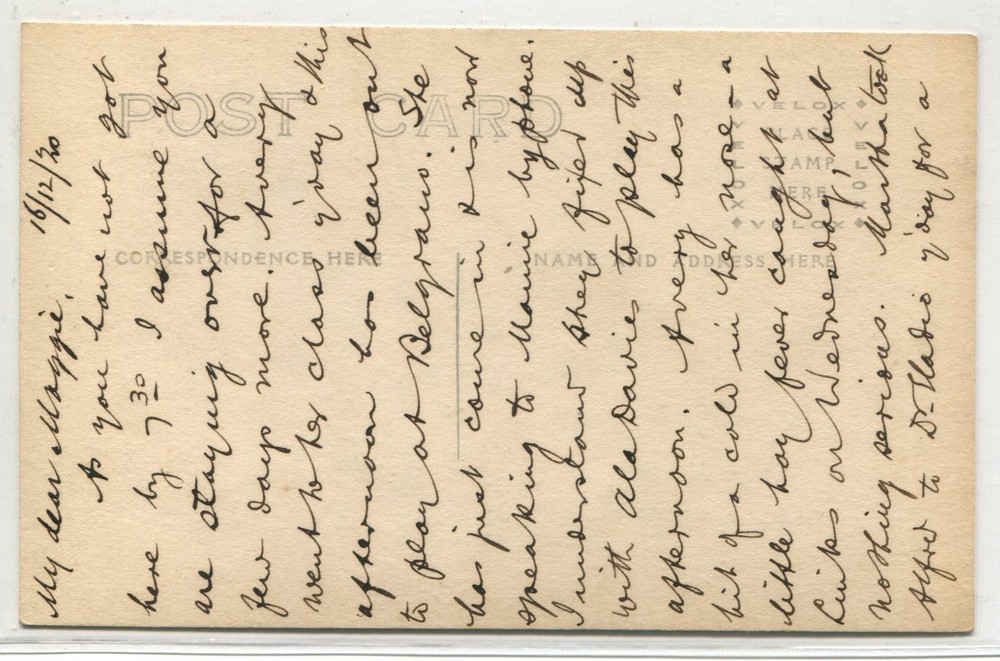 16/12/20
My dear Maggie.
As you have not got
here by 7 30 I assume you
are staying over for a
few days more. Avery
went to her class y'day & this
afternoon has been out
to play at Belgrano. She
has just come in & is now
speaking to Mamie by phone.
I understand they fixed up
with Ala Davies to play this
afternoon. Avery has a
bit of a cold in her nose - a
little hay fever caught at
Links on Wednesday, but
nothing serious. Martha took
Alfred to Dr. Sladio y'day for a
POST CARD
CORRESPONDENCE HERE
NAME AND ADDRESS HERE
VELOX
VELOX
PLACE
STAMP
HERE
VELOX
VELOX